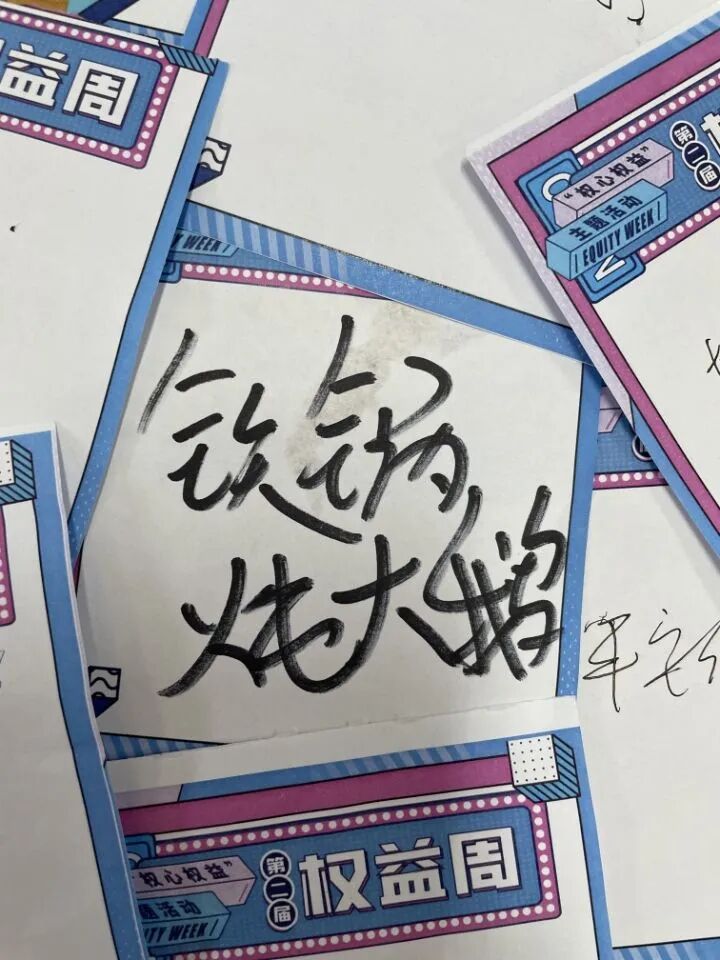 益周
第二届
"权心权益"
主题活动
EQUITY WEEK
WEEK
铁锅
炖大鹅
第二届
权益周
"权心权益"
主题活动
TY WEEK